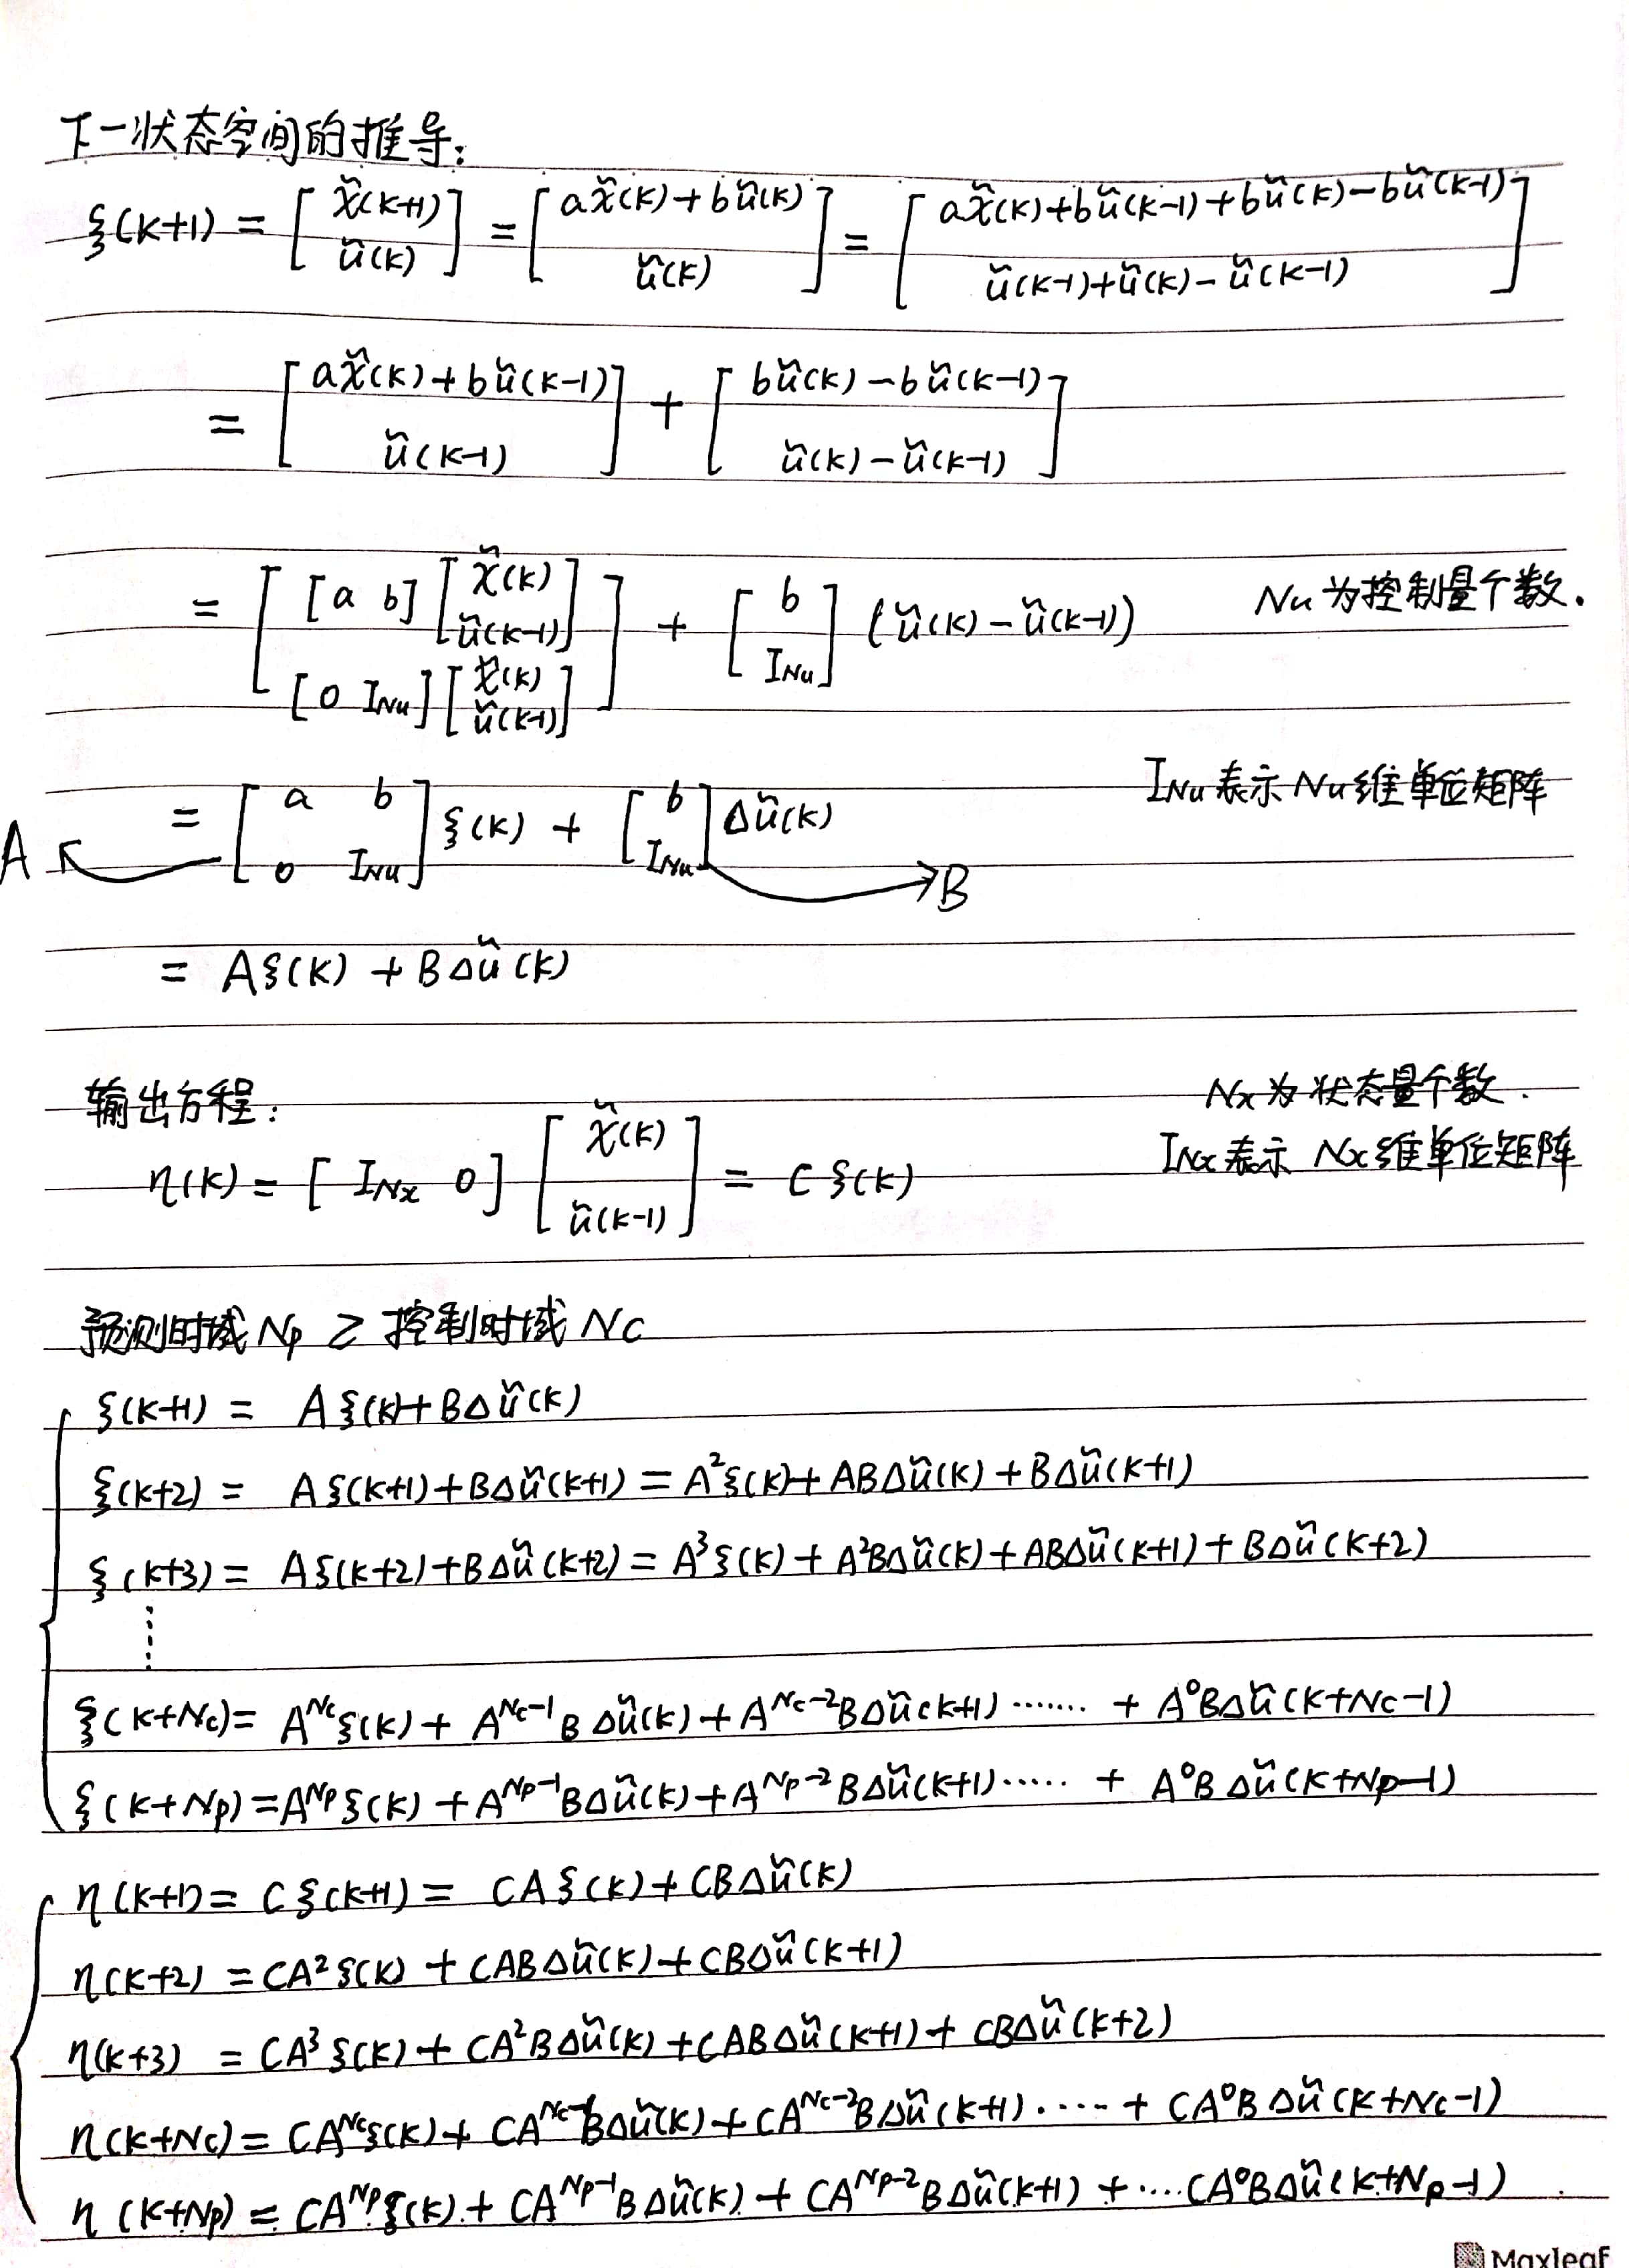 下一状态空间的推导:
ξ(k+1) = [x̃(k+1); ũ(k)] = [ax̃(k)+bũ(k); ũ(k)] = [ax̃(k)+bũ(k-1)+bũ(k)-bũ(k-1); ũ(k-1)+ũ(k)-ũ(k-1)]
= [ax̃(k)+bũ(k-1); ũ(k-1)] + [bũ(k)-bũ(k-1); ũ(k)-ũ(k-1)]
= [[a b][x̃(k); ũ(k-1)]; [0 I_Nu][x̃(k); ũ(k-1)]] + [b; I_Nu](ũ(k)-ũ(k-1)) Nu为控制量个数.
I_Nu表示Nu维单位矩阵
A = [a b; 0 I_Nu]ξ(k) + [b; I_Nu]Δũ(k) B
= Aξ(k) + BΔũ(k)
输出方程: Nx为状态量个数.
η(k) = [I_Nx 0][x̃(k); ũ(k-1)] = Cξ(k) I_Nx表示Nx维单位矩阵
预测时域Np ≥ 控制时域Nc
ξ(k+1) = Aξ(k)+BΔũ(k)
ξ(k+2) = Aξ(k+1)+BΔũ(k+1) = A²ξ(k)+ABΔũ(k)+BΔũ(k+1)
ξ(k+3) = Aξ(k+2)+BΔũ(k+2) = A³ξ(k)+A²BΔũ(k)+ABΔũ(k+1)+BΔũ(k+2)
⋮
ξ(k+Nc) = A^Nc ξ(k) + A^(Nc-1)BΔũ(k) + A^(Nc-2)BΔũ(k+1) ······· + A⁰BΔũ(k+Nc-1)
ξ(k+Np) = A^Np ξ(k) + A^(Np-1)BΔũ(k) + A^(Np-2)BΔũ(k+1) ····· + A⁰BΔũ(k+Np-1)
η(k+1) = Cξ(k+1) = CAξ(k)+CBΔũ(k)
η(k+2) = CA²ξ(k) + CABΔũ(k)+CBΔũ(k+1)
η(k+3) = CA³ξ(k) + CA²BΔũ(k)+CABΔũ(k+1)+CBΔũ(k+2)
η(k+Nc) = CA^Nc ξ(k) + CA^(Nc-1)BΔũ(k) + CA^(Nc-2)BΔũ(k+1) ····· + CA⁰BΔũ(k+Nc-1)
η(k+Np) = CA^Np ξ(k) + CA^(Np-1)BΔũ(k) + CA^(Np-2)BΔũ(k+1) + ····CA⁰BΔũ(k+Np-1)
Maxleaf